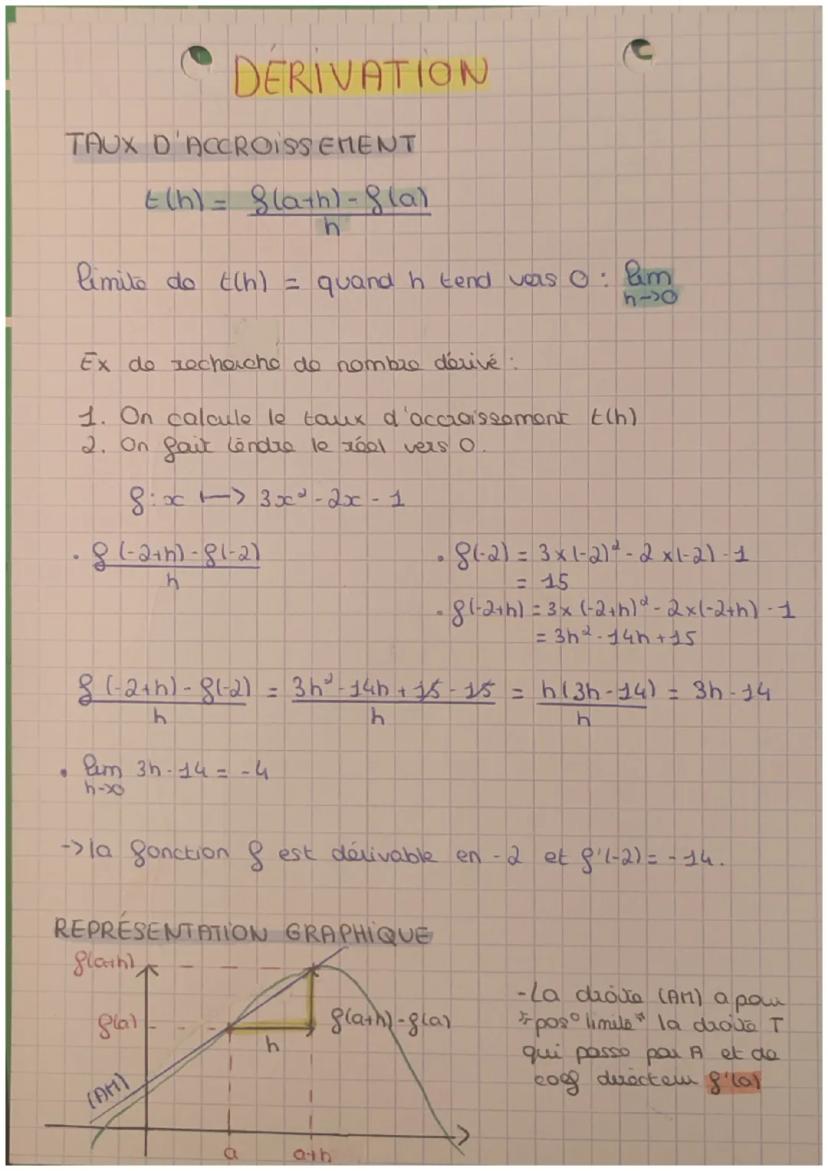 DÉRIVATION
TAUX D'ACCROISSEMENT
t(h) = f(a+h) - f(a) / h
limite de t(h) = quand h tend vers 0 : lim h->0
Ex de recherche de nombre dérivé :
1. On calcule le taux d'accroissement t(h)
2. On fait tendre le réel vers 0.
f : x |-> 3x² - 2x - 1
• f(-2+h) - f(-2) / h
• f(-2) = 3 x (-2)² - 2 x (-2) - 1
= 15
• f(-2+h) = 3 x (-2+h)² - 2 x (-2+h) - 1
= 3h² - 14h + 15
f(-2+h) - f(-2) / h = 3h² - 14h + 15 - 15 / h = h(3h - 14) / h = 3h - 14
• lim h->0 3h - 14 = -4
-> la fonction f est dérivable en -2 et f'(-2) = -14.
REPRÉSENTATION GRAPHIQUE
f(a+h)
f(a)
f(a+h) - f(a)
h
(AM)
a
a+h
- La droite (AM) a pour
"pos° limite" la droite T
qui passe par A et de
coef directeur f'(a)